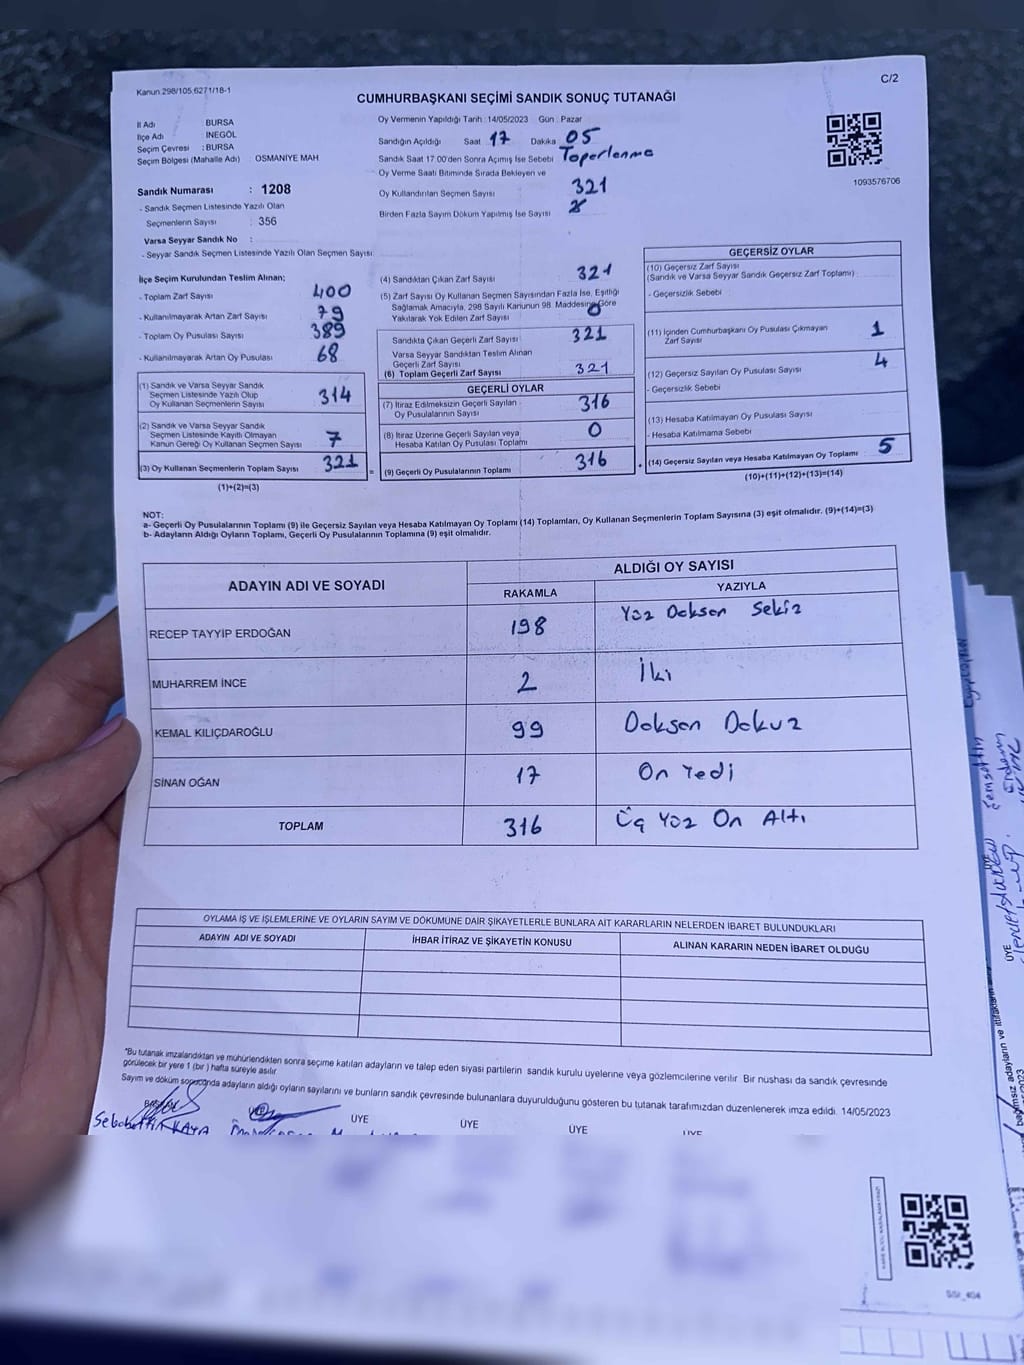 C/2
Kanun 298/105 6271/18-1
CUMHURBAŞKANI SEÇİMİ SANDIK SONUÇ TUTANAĞI
İl Adı BURSA
İlçe Adı INEGÖL
Seçim Çevresi : BURSA
Seçim Bölgesi (Mahalle Adı) OSMANİYE MAH
Sandık Numarası : 1208
- Sandık Seçmen Listesinde Yazılı Olan
Seçmenlerin Sayısı : 356
Varsa Seyyar Sandık No :
- Seyyar Sandık Seçmen Listesinde Yazılı Olan Seçmen Sayısı:
Oy Vermenin Yapıldığı Tarih : 14/05/2023 Gün : Pazar
Sandığın Açıldığı Saat 17 Dakika 05
Sandık Saat 17 00'den Sonra Açımış İse Sebebi Toperlenme
Oy Verme Saati Bitiminde Sırada Bekleyen ve
Oy Kullandırılan Seçmen Sayısı 321
Birden Fazla Sayım Döküm Yapılmış İse Sayısı
1093576706
İlçe Seçim Kurulundan Teslim Alınan;
- Toplam Zarf Sayısı 400
- Kullanılmayarak Artan Zarf Sayısı 79
- Toplam Oy Pusulası Sayısı 389
- Kullanılmayarak Artan Oy Pusulası 68
(1) Sandık ve Varsa Seyyar Sandık
Seçmen Listesinde Yazılı Olup
Oy Kullanan Seçmenlerin Sayısı 314
(2) Sandık ve Varsa Seyyar Sandık
Seçmen Listesinde Kayıtlı Olmayan
Kanun Gereği Oy Kullanan Seçmen Sayısı 7
(3) Oy Kullanan Seçmenlerin Toplam Sayısı 321 =
(1)+(2)=(3)
(4) Sandıktan Çıkan Zarf Sayısı 321
(5) Zarf Sayısı Oy Kullanan Seçmen Sayısından Fazla İse, Eşitliği
Sağlamak Amacıyla, 298 Sayılı Kanunun 98. Maddesine Göre
Yakılarak Yok Edilen Zarf Sayısı 0
Sandıkta Çıkan Geçerli Zarf Sayısı 321
Varsa Seyyar Sandıktan Teslim Alınan
Geçerli Zarf Sayısı
(6) Toplam Geçerli Zarf Sayısı 321
GEÇERLİ OYLAR
(7) İtiraz Edilmeksizin Geçerli Sayılan
Oy Pusulalarının Sayısı 316
(8) İtiraz Üzerine Geçerli Sayılan veya
Hesaba Katılan Oy Pusulası Toplamı 0
(9) Geçerli Oy Pusulalarının Toplamı 316
GEÇERSİZ OYLAR
(10) Geçersiz Zarf Sayısı
(Sandık ve Varsa Seyyar Sandık Geçersiz Zarf Toplamı)
- Geçersizlik Sebebi
(11) İçinden Cumhurbaşkanı Oy Pusulası Çıkmayan
Zarf Sayısı 1
(12) Geçersiz Sayılan Oy Pusulası Sayısı 4
- Geçersizlik Sebebi
(13) Hesaba Katılmayan Oy Pusulası Sayısı
- Hesaba Katılmama Sebebi
(14) Geçersiz Sayılan veya Hesaba Katılmayan Oy Toplamı 5
(10)+(11)+(12)+(13)=(14)
NOT:
a- Geçerli Oy Pusulalarının Toplamı (9) ile Geçersiz Sayılan veya Hesaba Katılmayan Oy Toplamı (14) Toplamları, Oy Kullanan Seçmenlerin Toplam Sayısına (3) eşit olmalıdır. (9)+(14)=(3)
b- Adayların Aldığı Oyların Toplamı, Geçerli Oy Pusulalarının Toplamına (9) eşit olmalıdır.
ADAYIN ADI VE SOYADI ALDIĞI OY SAYISI
RAKAMLA YAZIYLA
RECEP TAYYİP ERDOĞAN 198 Yüz Doksen Sekiz
MUHARREM İNCE 2 İki
KEMAL KILIÇDAROĞLU 99 Doksen Dokuz
SİNAN OĞAN 17 On Yedi
TOPLAM 316 Üç Yüz On Altı
OYLAMA İŞ VE İŞLEMLERİNE VE OYLARIN SAYIM VE DÖKÜMÜNE DAİR ŞİKAYETLERLE BUNLARA AİT KARARLARIN NELERDEN İBARET BULUNDUKLARI
ADAYIN ADI VE SOYADI İHBAR İTİRAZ VE ŞİKAYETİN KONUSU ALINAN KARARIN NEDEN İBARET OLDUĞU
*Bu tutanak imzalandıktan ve mühürlendikten sonra seçime katılan adayların ve talep eden siyasi partilerin sandık kurulu üyelerine veya gözlemcilerine verilir Bir nüshası da sandık çevresinde
görülecek bir yere 1 (bir ) hafta süreyle asılır
Sayım ve döküm sonucunda adayların aldığı oyların sayılarını ve bunların sandık çevresinde bulunanlara duyurulduğunu gösteren bu tutanak tarafımızdan düzenlenerek imza edildi. 14/05/2023
ÜYE ÜYE ÜYE ÜYE
KAYA
ÜYE
bağımsız adayların ve ittifakların